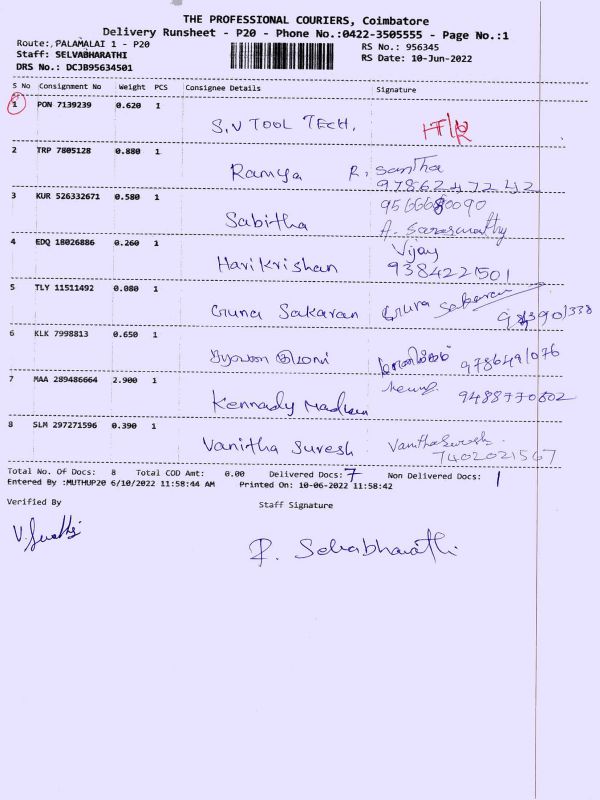 THE PROFESSIONAL COURIERS, Coimbatore
Delivery Runsheet - P20 - Phone No.:0422-3505555 - Page No.:1
Route: PALAMALAI 1 - P20
RS No.: 956345
Staff: SELVABHARATHI
RS Date: 10-Jun-2022
DRS No.: DCJB95634501
S No Consignment No Weight PCS Consignee Details Signature
1 PON 7139239 0.620 1
S.V TOOL TECH.
2 TRP 7805128 0.880 1
Ramya R. Santha
9786247242
3 KUR 526332671 0.580 1
Sabitha
A. Saraswathy
4 EDQ 18026886 0.260 1
Vijay
Harikrishan 9384221501
5 TLY 11511492 0.080 1
Guna Sakaran Guna Sakaran
6 KLK 7998813 0.650 1
9786491076
7 MAA 289486664 2.900 1
Kennady 9488770802
8 SLM 297271596 0.390 1
Vanitha Suresh Vanitha Suresh
7402021567
Total No. Of Docs: 8 Total COD Amt: 0.00 Delivered Docs: 7 Non Delivered Docs: 1
Entered By :MUTHUP20 6/10/2022 11:58:44 AM Printed On: 10-06-2022 11:58:42
Verified By Staff Signature
P. Selvabharathi